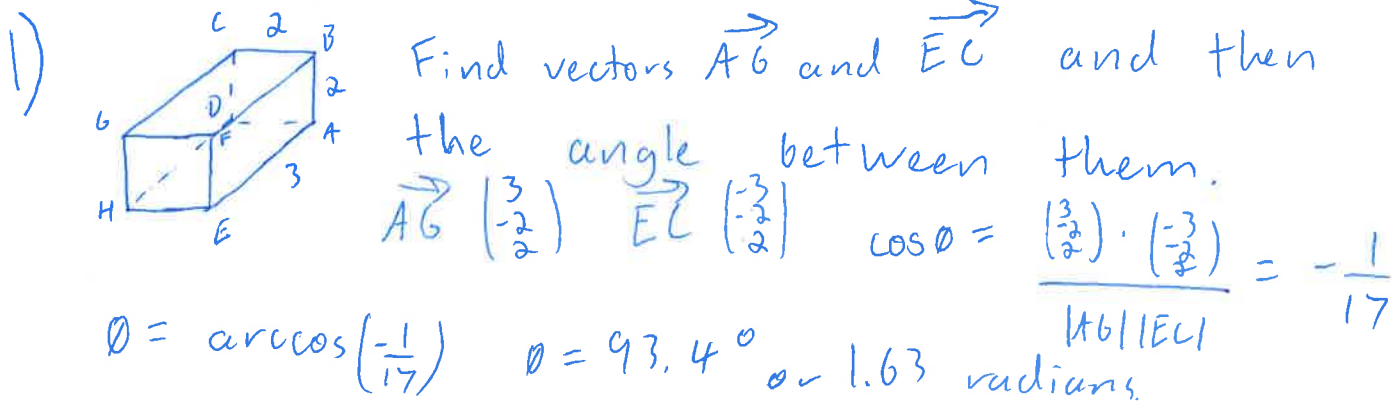 1)
C 2 B
2
G D F A
3
H E
Find vectors \overrightarrow{AG} and \overrightarrow{EC} and then
the angle between them.
\overrightarrow{AG} \begin{pmatrix} 3 \\ -2 \\ 2 \end{pmatrix} \overrightarrow{EC} \begin{pmatrix} -3 \\ -2 \\ 2 \end{pmatrix} cos ø = \frac{\begin{pmatrix} 3 \\ -2 \\ 2 \end{pmatrix} \cdot \begin{pmatrix} -3 \\ -2 \\ 2 \end{pmatrix}}{|AG||EC|} = -\frac{1}{17}
ø = arccos(\frac{-1}{17}) ø = 93.4° or 1.63 radians.